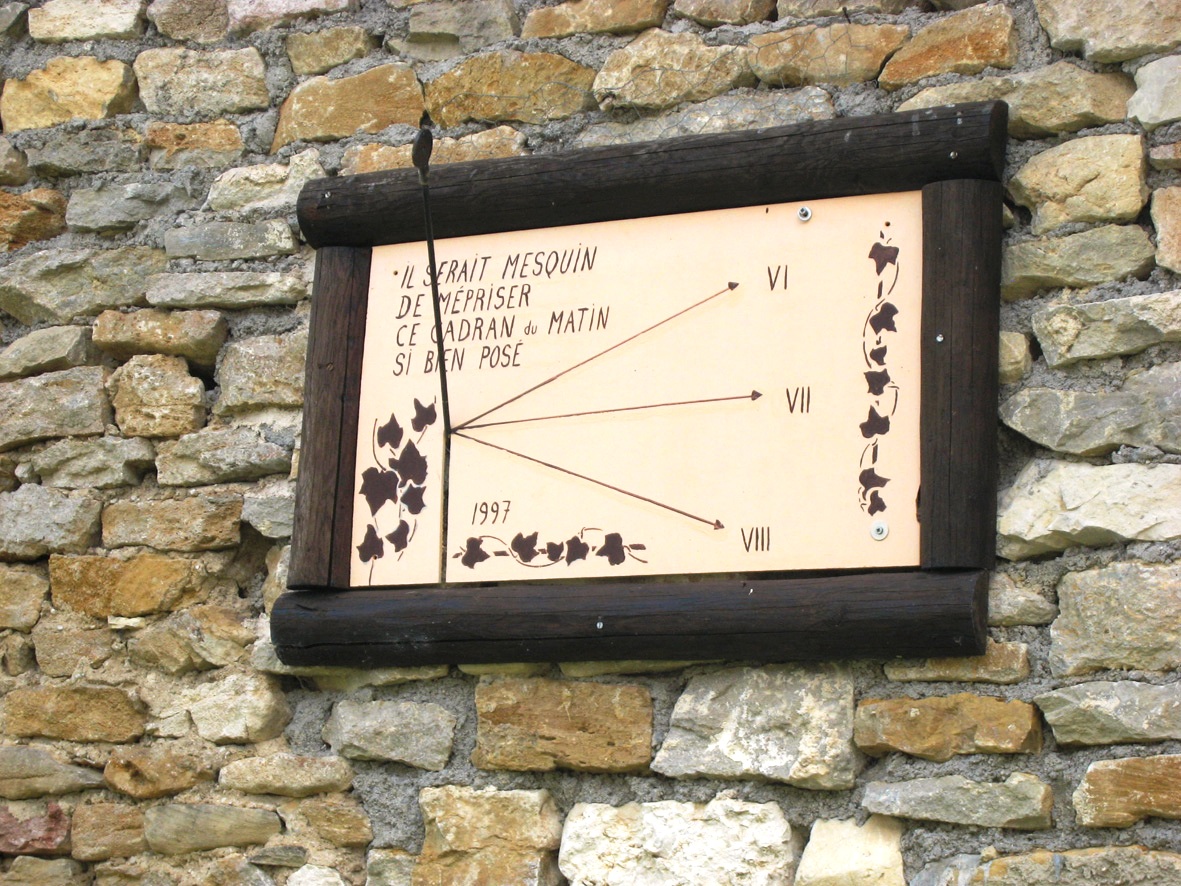 IL SERAIT MESQUIN
DE MÉPRISER
CE CADRAN du MATIN
SI BIEN POSÉ
VI
VII
1997
VIII